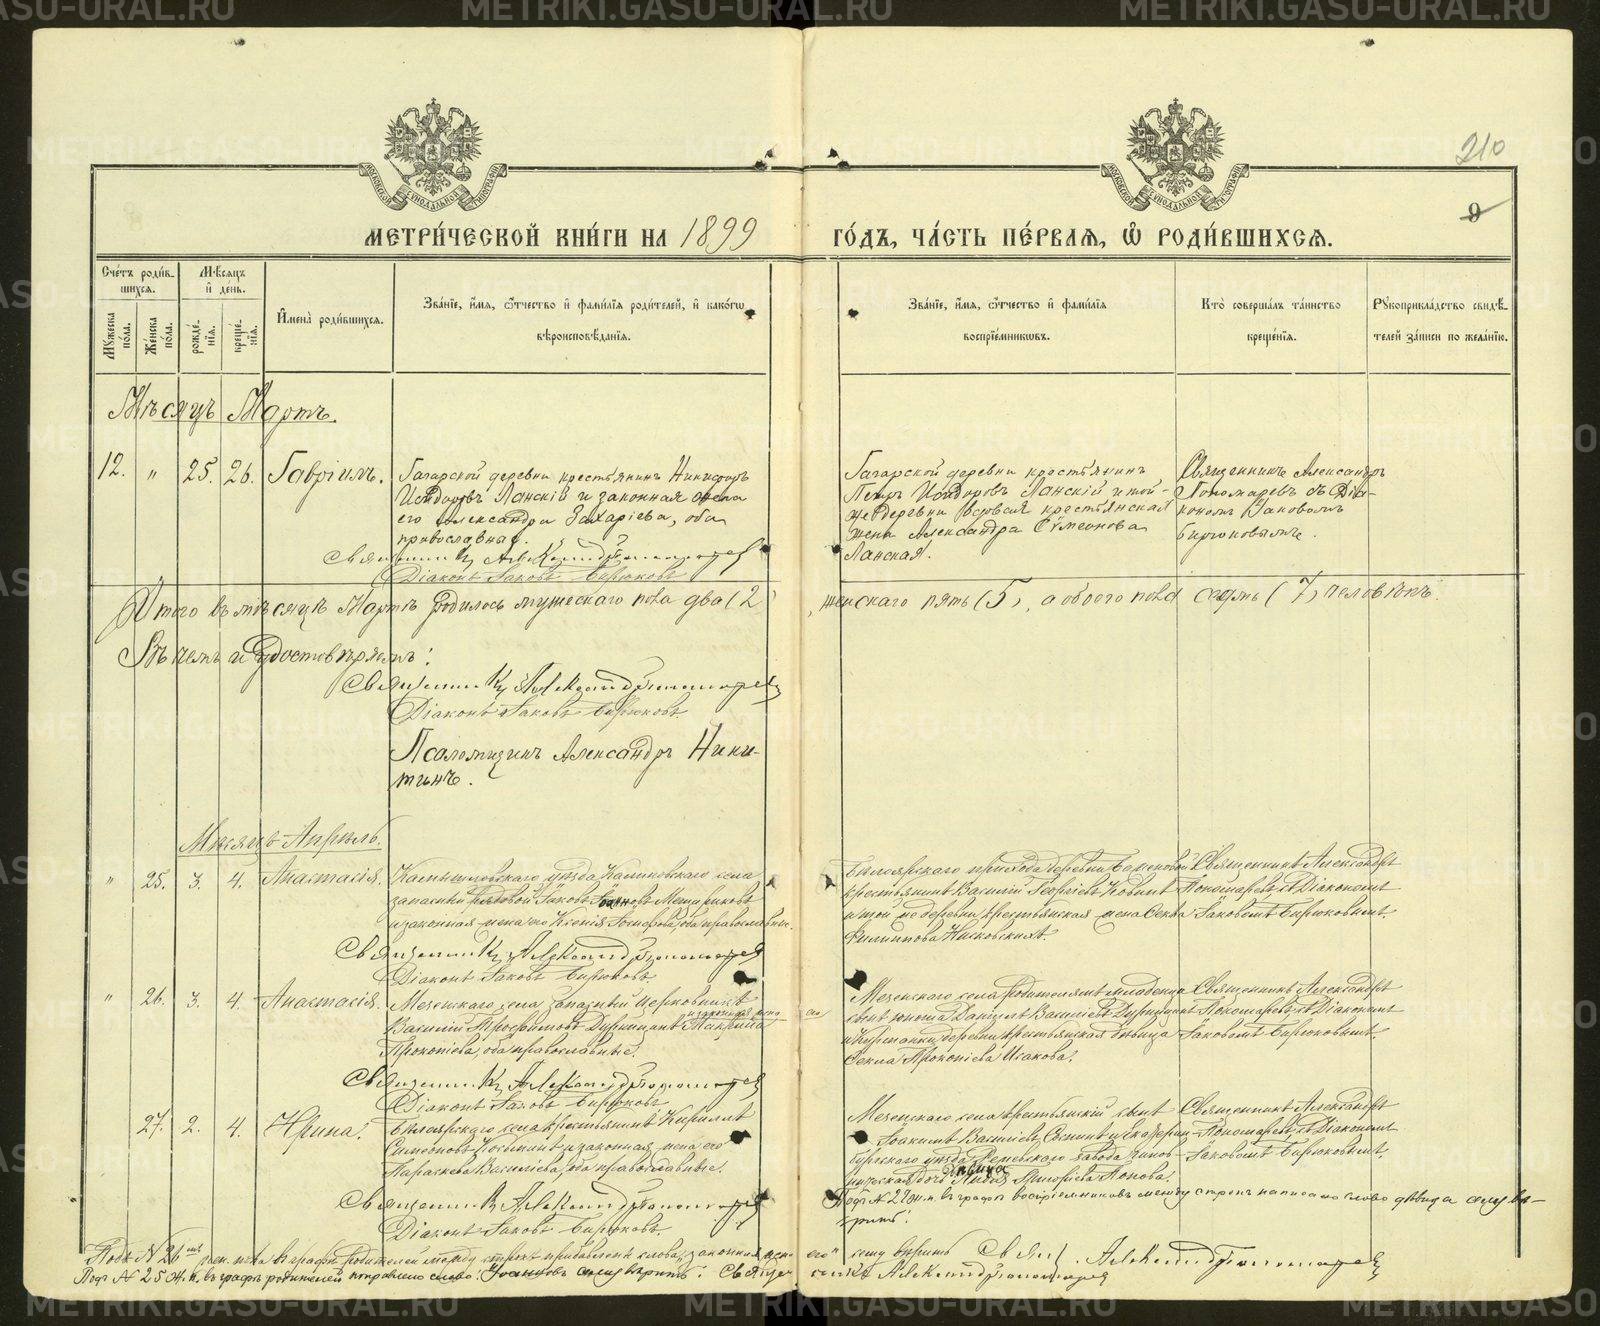 210
9
МЕТРИ́ЧЕСКОЙ КНИ́ГИ НА 1899
ГО́ДЪ, ЧА́СТЬ ПЕ́РВАЯ, Ѽ РОДИ́ВШИХСЯ.
Сче́тъ роди́в-
шихся.
Мѣ́сяцъ
и҆ де́нь.
Му́жеска
по́ла.
Же́нска
по́ла.
рожде́-
нія.
креще́-
нія.
И҆мена̀ роди́вшихся.
Зва́ніе, и҆́мя, ѻ҆́тчество и҆ фами́лія роди́телей, и҆ како́гѡ
вѣроисповѣ́данія.
Зва́ніе, и҆́мя, ѻ҆́тчество и҆ фами́лія
воспріе́мниковъ.
Кто̀ соверша́лъ та́инство
креще́нія.
Рукоприкла́дство свидѣ́-
телей за́писи по жела́нію.
Мѣсяцъ Мартъ.
12. " 25. 26. Гавріилъ.
Гагарской деревни крестьянинъ Никифоръ
Исидоровъ Ланскій и законная жена
его Александра Захаріева, оба
православные.
Священникъ Александръ Пономаревъ
Діаконъ Іаковъ Бирюковъ
Гагарской деревни крестьянинъ
Петръ Исидоровъ Ланскій и той-
же деревни вдовая крестьянская
жена Александра Сѵмеонова
Ланская.
Священникъ Александръ
Пономаревъ съ Діа-
кономъ Іаковомъ
Бирюковымъ.
Итого въ мѣсяцѣ Мартѣ родилось мужескаго пола два (2)
женскаго пять (5), а обоего пола семь (7) человѣкъ.
Въ чемъ и удостовѣряемъ:
Священникъ Александръ Пономаревъ
Діаконъ Іаковъ Бирюковъ
Псаломщикъ Александръ Ники-
тинъ.
Мѣсяцъ Апрѣль.
" 25. 3. 4. Анастасія.
Камышловскаго уѣзда Калиновскаго села
запасный рядовой Іаковъ Іоанновъ Мещериковъ
и законная жена его Ксенія, оба православные.
Священникъ Александръ Пономаревъ
Діаконъ Іаковъ Бирюковъ.
Бѣлоярскаго прихода деревни Баженовой
крестьянинъ Василій Георгіевъ
и той же деревни крестьянская жена Ѳекла
Филиппова
Священникъ Александръ
Пономаревъ съ Діакономъ
Іаковомъ Бирюковымъ.
" 26. 3. 4. Анастасія.
Мезенскаго села запасный церковникъ
Василій и законная жена
его Макрина
Прокопіева, оба православные.
Священникъ Александръ Пономаревъ
Діаконъ Іаковъ Бирюковъ
Мезенскаго села родителямъ младенца
сынъ юноша Даніилъ Васильевъ
и деревни крестьянская дѣвица
Ѳекла Прокопіева Исакова.
Священникъ Александръ
Пономаревъ съ Діакономъ
Іаковомъ Бирюковымъ.
27. 2. 4. Ирина.
Бѣлоярскаго села крестьянинъ Кириллъ
Симеоновъ и законная жена его
Параскева Васильева, оба православные.
Священникъ Александръ Пономаревъ
Діаконъ Іаковъ Бирюковъ.
Мезенскаго села крестьянскій сынъ
Іоакимъ Васильевъ и Екатерин-
бургскаго уѣзда завода чинов-
ническая дочь дѣвица Лидія Григорьева Попова.
Священникъ Александръ
Пономаревъ съ Діакономъ
Іаковомъ Бирюковымъ.
Подъ № 27 ж.п. въ графѣ воспріемниковъ между строкъ написано слово дѣвица сему вѣ-
рить.
Подъ № 26 жен. пола въ графѣ родителей между строкъ прибавлены слова „законная жена
его“ сему вѣрить Свящ. Александръ Пономаревъ
Подъ № 25 ж.п. въ графѣ родителей исправлено слово: Іоанновъ сему вѣрить: Священ-
никъ Александръ Пономаревъ
METRIKI.GASU-URAL.RU